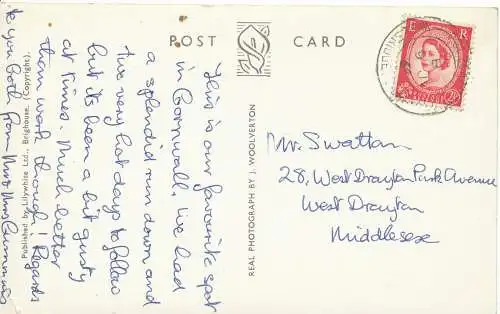 POST CARD
This is our favourite spot
in Cornwall. I've had
a splendid run down and
two very hot days to follow
but its been a bit gusty
at times. Much better
than work though! Regards
to you both from Mr & Mrs Cummins
Published by Lilywhite Ltd., Brighouse. (Copyright).
REAL PHOTOGRAPH BY J. WOOLVERTON
E R
POSTAGE
REVENUE
2½D
Mr. Swattan
28, West Drayton Park Avenue
West Drayton
Middlesex